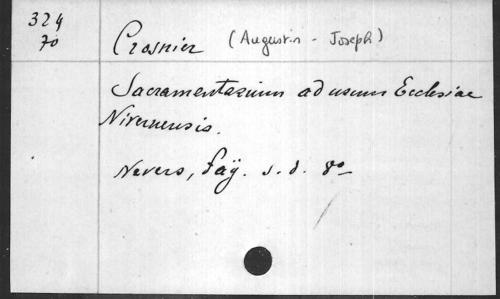 324
70
Crosnier (Augustin - Joseph)
Sacramentarium ad usum Ecclesiae
Nivernensis.
Nevers, Faÿ. s. d. 8o